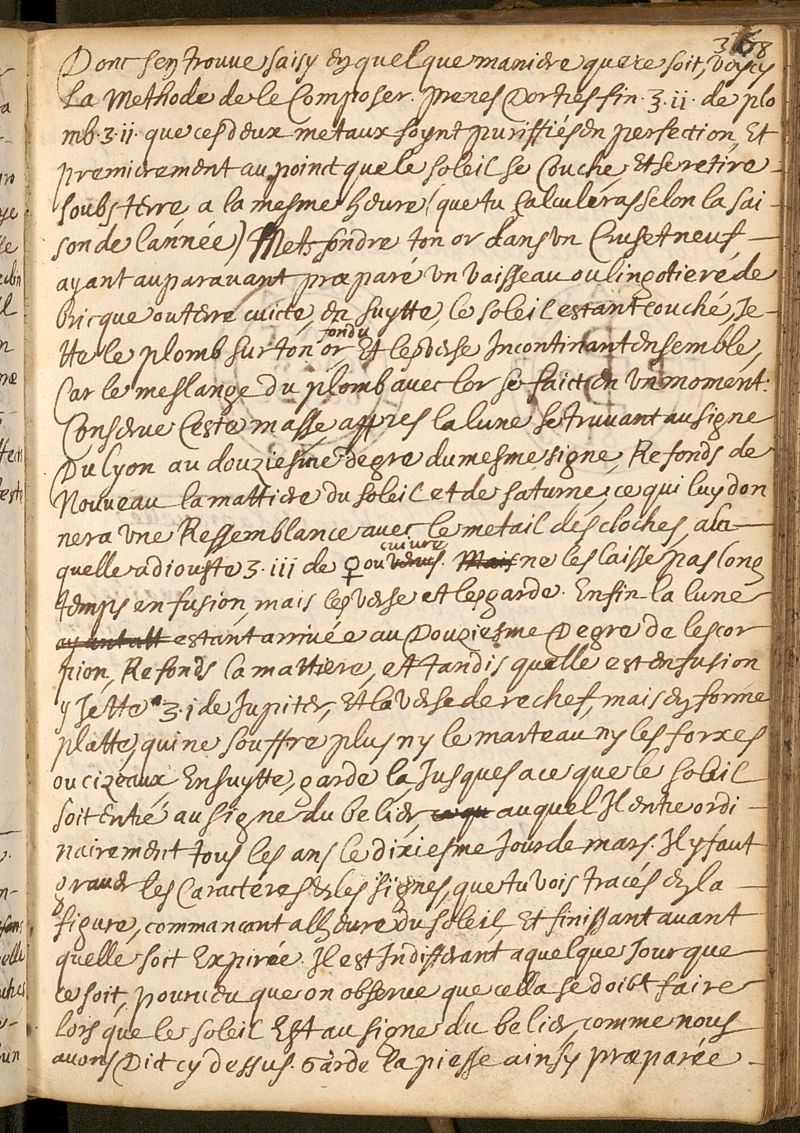 368
Donc s'en trouve saisy en quelque maniere que ce soit, voycy
La Methode de le Composer. prenes D'or tres fin. ʒ. ii. de plo
mb. ʒ. ii. que ces deux metaux soynt puriffiés en perfection, Et
premierement au poinct que le soleil se Couche Et se retire
soubs terre a la mesme heure (que tu Calculeras selon la sai-
son de l'année) Mets fondre ton or dans un Cruset neuf
ayant auparavant præparé un vaisseau ou lingotiere de
bricque ou terre cuicte, en suytte, le soleil estant couché, Je-
tte le plomb sur ton or fondu Et les verse Incontinant ensemble,
Car le meslange du plomb avec l'or se faict en un moment.
Conserve Ceste masse, appres la lune se truvant au signe
Du lyon au douziesme degre du mesme signe, Refonds de
Nouveau la mattiere du soleil et de saturne, ce qui luy don
nera une Ressemblance avec le metail des cloches, a la
quelle adiouste ʒ. iii de ♀ ou cuivre. ne les laisse pas long
temps en fusion, mais les verse et les garde. Enfin la lune
estant arrivée au Douziesme Degre de lescor
pion, Refonds la mattiere, et tandis quelle est en fusion
y Jette ʒ. i de Jupiter, Et la verse de rechef, mais en forme
platte, qui ne souffre plus ny le marteau ny les forces
ou cizeaux Ensuytte, garde la Jusques a ce que le soleil
soit entré au signe du belier auquel Il entre ordi-
nairement tous les ans le dixiesme Jour de mars. Il y faut
graver les Caracteres et les signes, que tu vois tracés en la
figure, commancant a lheure du soleil, Et finissant avant
quelle soit Expirée. Il est Indifferant a quelque Jour que
ce soit, pourveu que on observe que cella se doibt faire
Lors que le soleil Est au signe du belier, comme nous
avons Dit cy dessus. Garde la piesse ainsy præparée